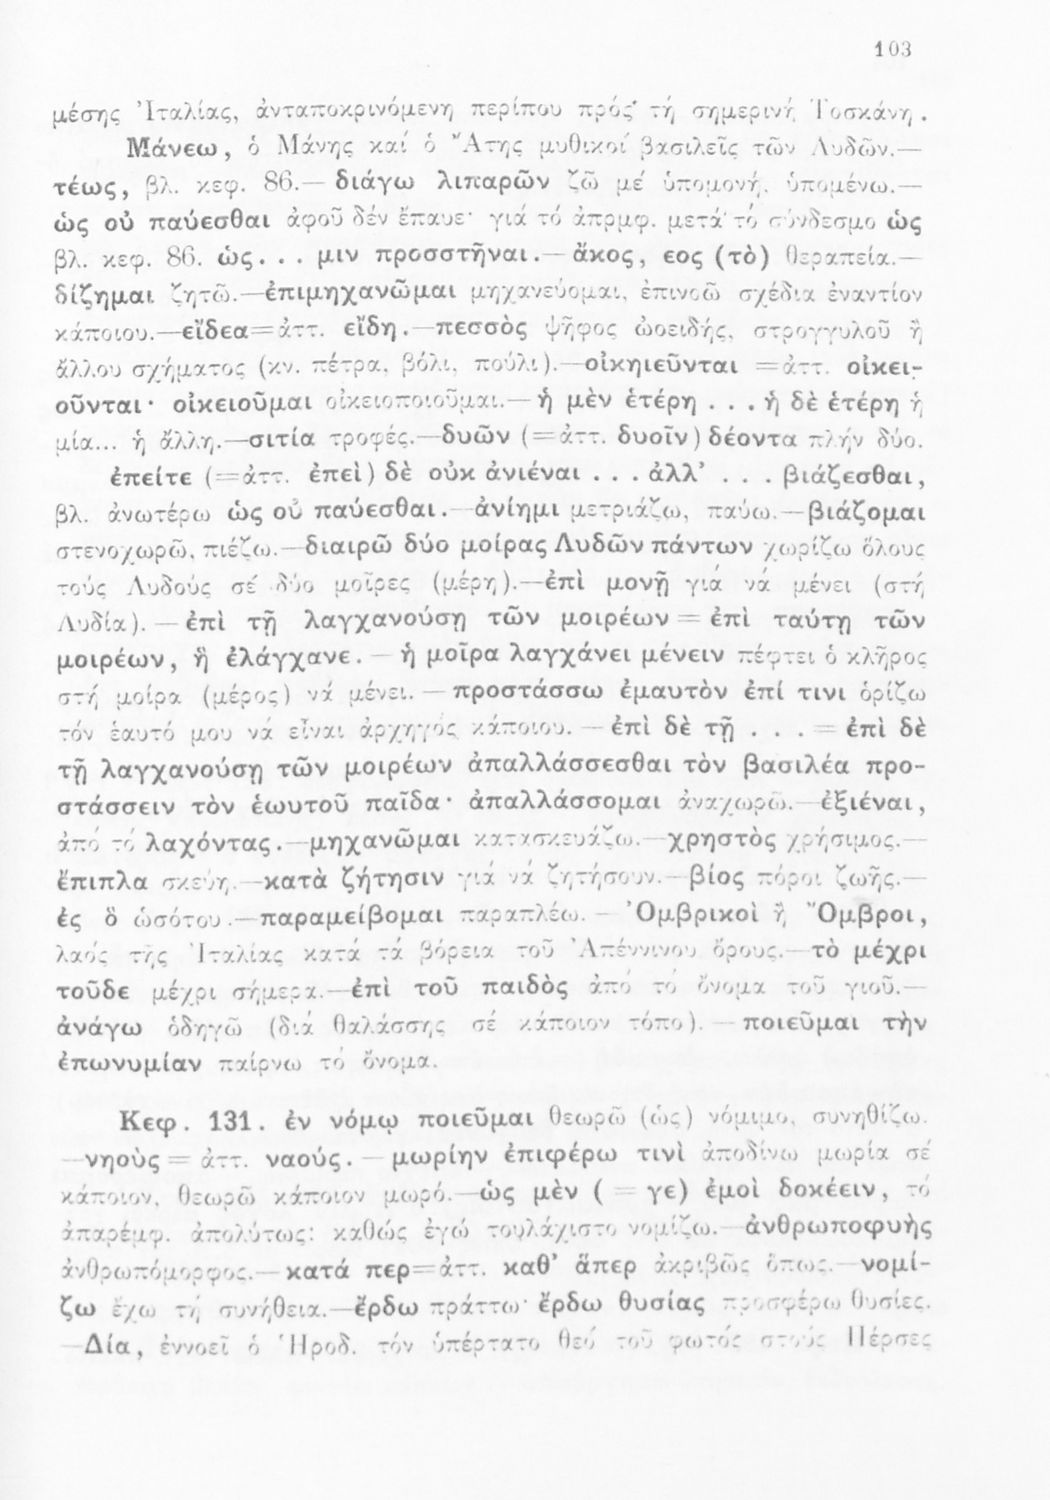 103
μέσης Ἰταλίας, ἀνταποκρινόμενη περίπου πρός τή σημερινή Τοσκάνη.
Μάνεω, ὁ Μάνης καί ὁ Ἄτης μυθικοί βασιλεῖς τῶν Λυδῶν.—
τέως, βλ. κεφ. 86.— διάγω λιπαρῶν ζῶ μέ ὑπομονή, ὑπομένω.—
ὡς οὐ παύεσθαι ἀφοῦ δέν ἔπαυε· γιά τό ἀπρμφ. μετά τό σύνδεσμο ὡς
βλ. κεφ. 86. ὡς. . . μιν προσστῆναι.— ἄκος, εος (τὸ) θεραπεία.—
δίζημαι ζητῶ.—ἐπιμηχανῶμαι μηχανεύομαι, ἐπινοῶ σχέδια ἐναντίον
κάποιου.—εἴδεα=ἀττ. εἴδη.—πεσσὸς ψῆφος ὠοειδής, στρογγυλοῦ ἤ
ἄλλου σχήματος (κν. πέτρα, βόλι, πούλι).—οἰκηιεῦνται =ἀττ. οἰκει-
οῦνται· οἰκειοῦμαι οἰκειοποιοῦμαι.— ἡ μὲν ἑτέρη . . . ἡ δὲ ἑτέρη ἡ
μία... ἡ ἄλλη.—σιτία τροφές.—δυῶν (=ἀττ. δυοῖν) δέοντα πλήν δύο.
ἐπείτε (=ἀττ. ἐπεὶ) δὲ οὐκ ἀνιέναι . . . ἀλλ’ . . . βιάζεσθαι,
βλ. ἀνωτέρω ὡς οὐ παύεσθαι.—ἀνίημι μετριάζω, παύω.—βιάζομαι
στενοχωρῶ, πιέζω.—διαιρῶ δύο μοίρας Λυδῶν πάντων χωρίζω ὅλους
τούς Λυδούς σέ δύο μοῖρες (μέρη).—ἐπὶ μονῇ γιά νά μένει (στή
Λυδία). — ἐπὶ τῇ λαγχανούσῃ τῶν μοιρέων = ἐπὶ ταύτῃ τῶν
μοιρέων, ἣ ἐλάγχανε.— ἡ μοῖρα λαγχάνει μένειν πέφτει ὁ κλῆρος
στή μοίρα (μέρος) νά μένει. — προστάσσω ἐμαυτὸν ἐπί τινι ὁρίζω
τόν ἑαυτό μου νά εἶναι ἀρχηγός κάποιου. — ἐπὶ δὲ τῇ . . . = ἐπὶ δὲ
τῇ λαγχανούσῃ τῶν μοιρέων ἀπαλλάσσεσθαι τὸν βασιλέα προ-
στάσσειν τὸν ἑωυτοῦ παῖδα· ἀπαλλάσσομαι ἀναχωρῶ.—ἐξιέναι,
ἀπό τό λαχόντας.—μηχανῶμαι κατασκευάζω.—χρηστὸς χρήσιμος.—
ἔπιπλα σκεύη.—κατὰ ζήτησιν γιά νά ζητήσουν.—βίος πόροι ζωῆς.—
ἐς ὃ ὡσότου.—παραμείβομαι παραπλέω. — Ὀμβρικοὶ ἤ Ὄμβροι,
λαός τῆς Ἰταλίας κατά τά βόρεια τοῦ Ἀπέννινου ὄρους.—τὸ μέχρι
τοῦδε μέχρι σήμερα.—ἐπὶ τοῦ παιδὸς ἀπό τό ὄνομα τοῦ γιοῦ.—
ἀνάγω ὁδηγῶ (διά θαλάσσης σέ κάποιον τόπο). — ποιεῦμαι τὴν
ἐπωνυμίαν παίρνω τό ὄνομα.
Κεφ. 131. ἐν νόμῳ ποιεῦμαι θεωρῶ (ὡς) νόμιμο, συνηθίζω.
—νηοὺς = ἀττ. ναούς. — μωρίην ἐπιφέρω τινὶ ἀποδίνω μωρία σέ
κάποιον, θεωρῶ κάποιον μωρό.—ὡς μὲν (= γε) ἐμοὶ δοκέειν, τό
ἀπαρέμφ. ἀπολύτως: καθώς ἐγώ τουλάχιστο νομίζω.—ἀνθρωποφυὴς
ἀνθρωπόμορφος.—κατά περ=ἀττ. καθ’ ἅπερ ἀκριβῶς ὅπως.—νομί-
ζω ἔχω τή συνήθεια.—ἔρδω πράττω· ἔρδω θυσίας προσφέρω θυσίες.
—Δία, ἐννοεῖ ὁ Ἡροδ. τόν ὑπέρτατο θεό τοῦ φωτός στούς Πέρσες